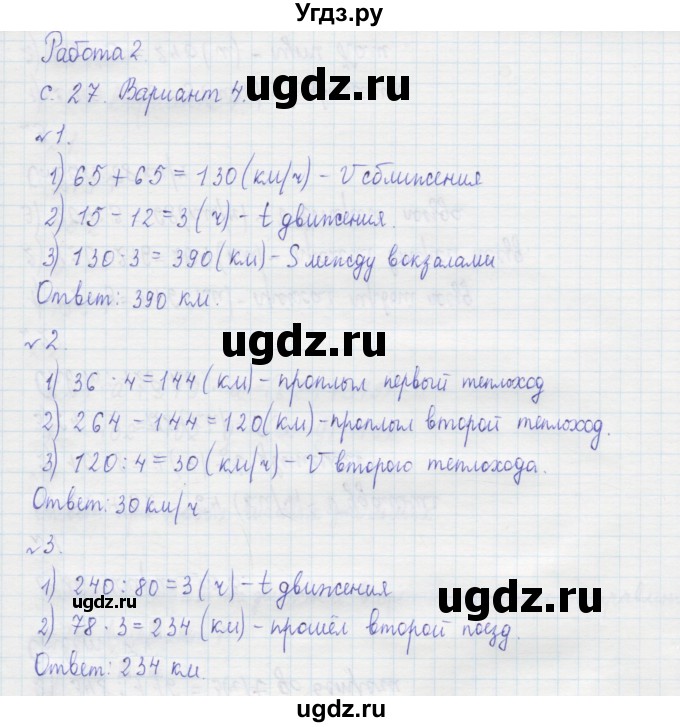 Угдз.ру
Работа 2
с. 27. Вариант 4.
ugdz.ru
№1.
1) 65 + 65 = 130 (км/ч) - V сближения
2) 15 - 12 = 3 (ч) - t движения.
3) 130 : 3 = 390 (км) - S между вокзалами
Ответ: 390 км.
ugdz.ru
№2.
1) 36 · 4 = 144 (км) - проплыл первый теплоход
2) 264 - 144 = 120 (км) - проплыл второй теплоход.
3) 120 : 4 = 30 (км/ч) - V второго теплохода.
Ответ: 30 км/ч
ugdz.ru
№3.
1) 240 : 80 = 3 (ч) - t движения
ugdz.ru ugdz.ru
2) 78 · 3 = 234 (км) - прошёл второй поезд.
Ответ: 234 км.
ugdz.ru